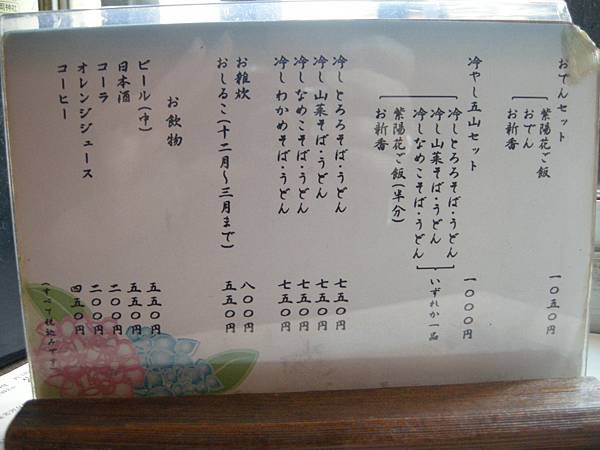 おでんセット 一〇五〇円
紫陽花ご飯
おでん
お新香
冷やし五山セット 一〇〇〇円
冷しとろろそば・うどん
冷し山菜そば・うどん
冷しなめこそば・うどん
いずれか一品
紫陽花ご飯(半分)
お新香
冷しとろろそば・うどん 七五〇円
冷し山菜そば・うどん 七五〇円
冷しなめこそば・うどん 七五〇円
冷しわかめそば・うどん 七五〇円
お雑炊 八〇〇円
おしるこ(十二月〜三月まで) 五五〇円
お飲物
ビール(中) 五五〇円
日本酒 五五〇円
コーラ 二〇〇円
オレンジジュース 二〇〇円
コーヒー 四五〇円
(すべて税込みです)